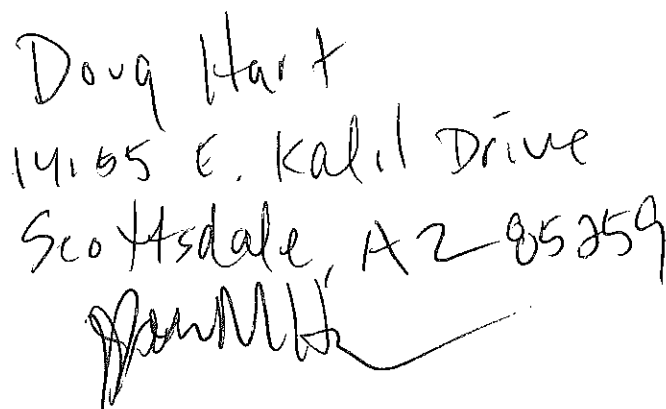 Doug Hart
14155 E. Kalil Drive
Scottsdale, AZ 85259